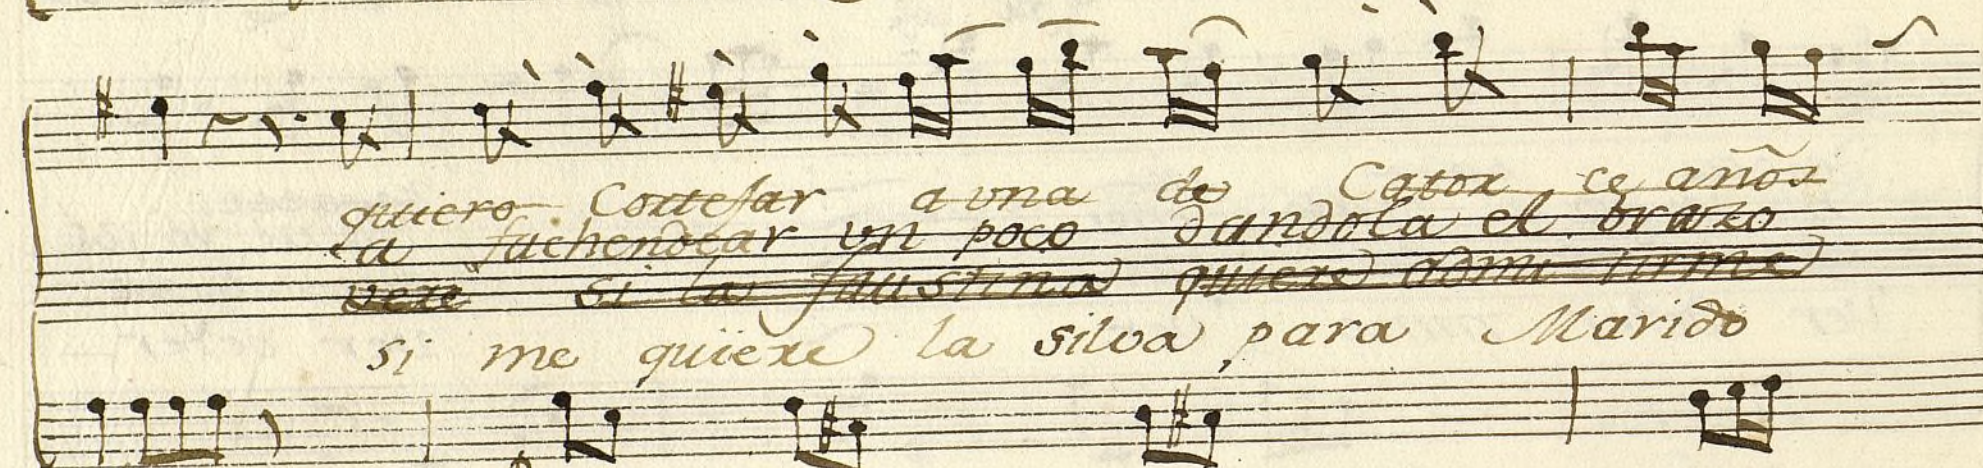 quiero Cortejar a una de Cator ce años
a fachendear un poco dandola el brazo
vere si la faustina quiere admi tirme
si me quiere la silva para Marido